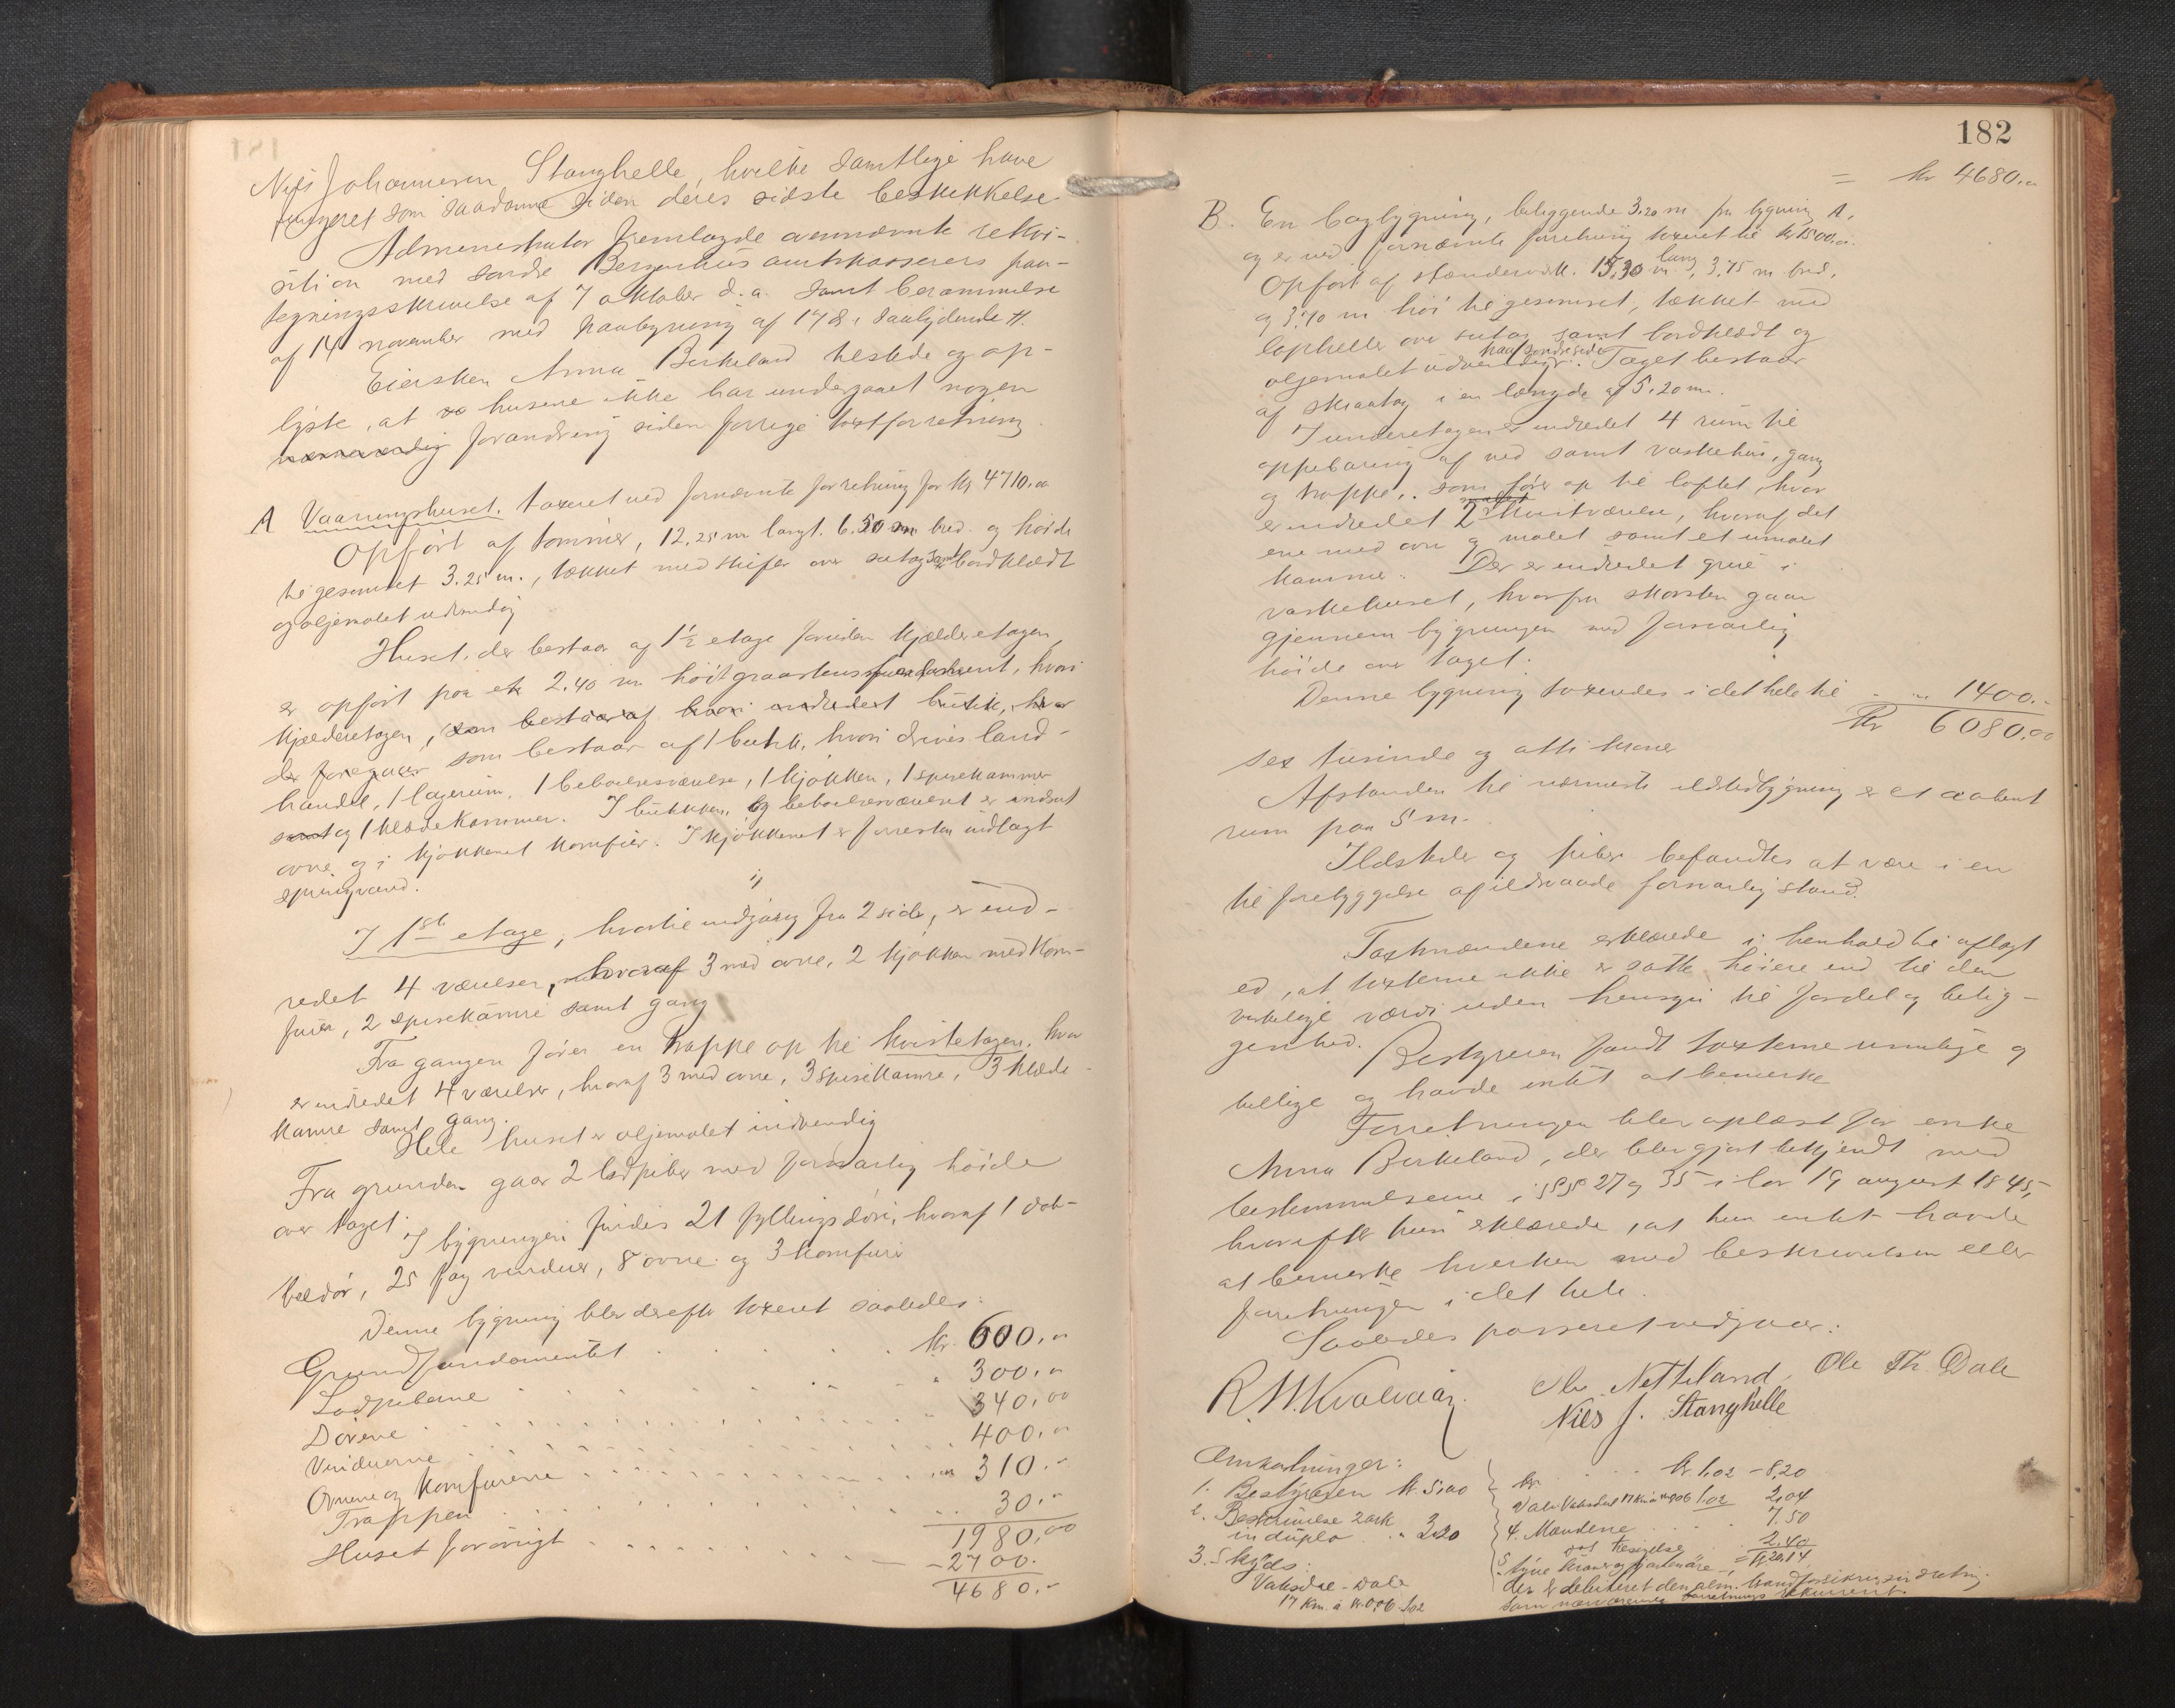 Nils Johannesen Stanghelle, hvilke samtlige have
fungeret som saadanne siden deres sidste beskikkelse
Administrator fremlagde avennævnte rekvi-
sition med søndre Bergenhus amtskasserers paa-
tegningsskrivelse af 7 oktober d.a. samt berammelse
af 14 november med paategning af 17 8. saalydende #.
Eiersken Anna Birkeland tilstede og op-
lyste, at husene ikke har undergaaet nogen
forandring siden forrige taxtforretning.
A Vaaningshuset. taxeret ved fornævnte forretning for kr 4710.00
Opført af tømmer, 12.25 m langt. 6.50 m bred. og høide
til gesimset 3.25 m., tækket med skifer over sutag samt bordklædt
og oljemalet udvendig
Huset, der bestaar af 1½ etage foruden kjælderetagen,
er opført paa et 2.40 m høit graastensfundament, hvori
kjælderetagen, som bestaar af hvori indredet butik, hvor
der foregaar som bestaar af 1 butik, hvori drives land-
handel, 1 lagerum, 1 beboelsesværelse, 1 kjøkken, 1 spisekammer
samt og 1 klædekammer. I butikken og beboelsesværelset er indsat
ovne og i kjøkkenet komfur. I kjøkkenet er forresten indlagt
springvand.
I 1ste etage, hvortil indgang fra 2 sider, er ind-
redet 4 værelser, hvoraf 3 med ovne, 2 kjøkken med kom-
furer, 2 spisekamre samt gang
Fra gangen fører en trappe op til kvistetagen, hvor
er indredet 4 værelser, hvoraf 3 med ovne, 3 spisekamre, 3 klæde-
kamre samt gang.
Hele huset er oljemalet indvendig
Fra grunden gaar 2 lodpiber med forsvarlig høide
over taget.
I bygningen findes 21 fyllingsdøre, hvoraf 1 dob-
beldør, 25 fag vinduer, 8 ovne og 3 komfurer
Denne bygning blev derefter taxeret saaledes:
Grundfundamentet . . . . kr. 600.00
Lodpiberne . . . . " 300.00
Dørene . . . . 340.00
Vinduerne . . . . 400.00
Ovnene og komfurerne . . . . 310.-
Trappen . . . . 30.-
1980.00
Huset forøvrigt . . . . - 2700.
4680.-
182
= kr 4680.00
B. En bagbygning, beliggende 3.20 m fra bygning A,
og er ved fornævnte forretning taxeret til kr 1500.00.
Opført af stænderværk. 15.30 m lang, 3.75 m bred,
og 3.70 m høi til gesimset, tækket med
lapheller over sutag samt bordklædt og
oljemalet udvendigt paa søndre side. Taget bestaar
af skraatag i en længde af 5.20 m.
I underetagen er indredet 4 rum til
oppebaring af ved samt vaskehus, gang
og trappe, som fører op til loftet, hvor
er indredet 2 kvistværelser, hvoraf det
ene med ovn og malet samt et umalet
kammer. Der er indredet grue i
vaskehuset, hvorfra skorsten gaar
gjennem bygningen med forsvarlig
høide over taget.
Denne bygning taxeredes i det hele til - " 1400.-
Kr 6080.00
sex tusinde og otti kroner
Afstanden til nærmeste ildstedbygning er et aabent
rum paa 5 m.
Ildsteder og piber befandtes at være i en
til forebyggelse af ildsvaade forsvarlig stand.
Taxtmændene erklærede i henhold til aflagt
ed, at taxterne ikke er satte høiere end til den
virkelige værdi uden hensyn til fordel og belig-
genhed. Bestyreren fandt taxterne rimelige og
billige og havde intet at bemerke
Forretningen blev oplæst for enke
Anna Birkeland, der blev gjort bekjendt med
bestemmelserne i §§ 27 og 35 i lov 19 august 1845,
hvorefter hun erklærede, at hun intet havde
at bemerke hverken med beskrivelsen eller
forretningen i det hele.
Saaledes passeret vedgaar:
R. M. Kvalvaag. Ole Netteland, Ole Th. Dale
Nils J. Stanghelle
Omkostninger:
1. Bestyreren kr. 5.00
2. Beskrivelse 2 ark
in duplo " 3.20
3. Skyds:
Vaksdal-Dale
17 Km. à kr. 0.06 1.02
kr. 1.02 - 8.20
Dale Vaksdal 17 Km à 0.06 1.02 2.04
4. Mændene . . . 7.50
2.40
tyve kroner og fjorten øre = kr. 20.14
der er debiteret den alm. brandforsikringsindretn.